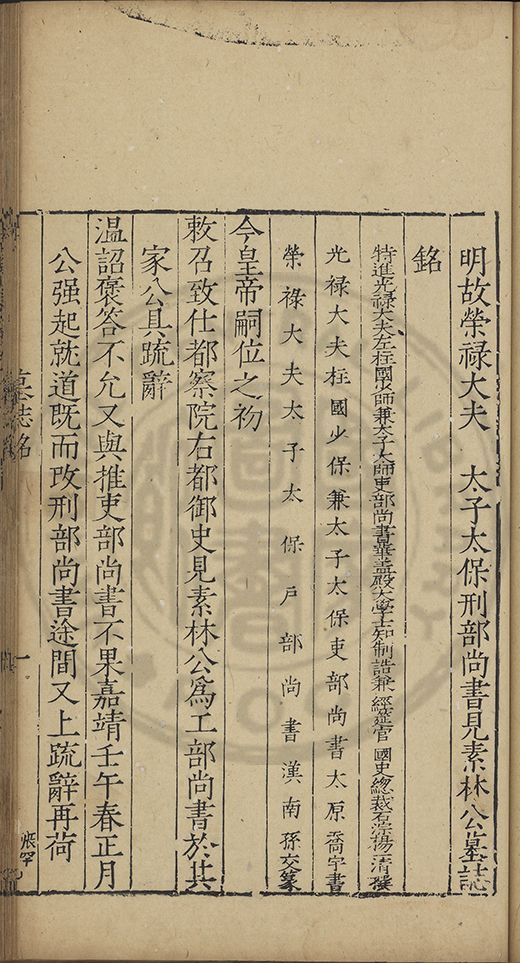 明故榮祿大夫　太子太保刑部尚書見素林公墓誌
銘
特進光祿大夫左柱國少師兼太子太師吏部尚書華蓋殿大學士知制誥兼　經筵官　國史總裁石淙楊一清撰
光祿大夫柱國少保兼太子太保吏部尚書太原喬宇書
榮祿大夫太子太保戶部尚書漢南孫交篆
今皇帝嗣位之初
敕召致仕都察院右都御史見素林公爲工部尚書於其
家公具疏辭
溫詔褒答不允又與推吏部尚書不果嘉靖壬午春正月
公强起就道既而改刑部尚書途間又上疏辭再荷
墓誌銘
一